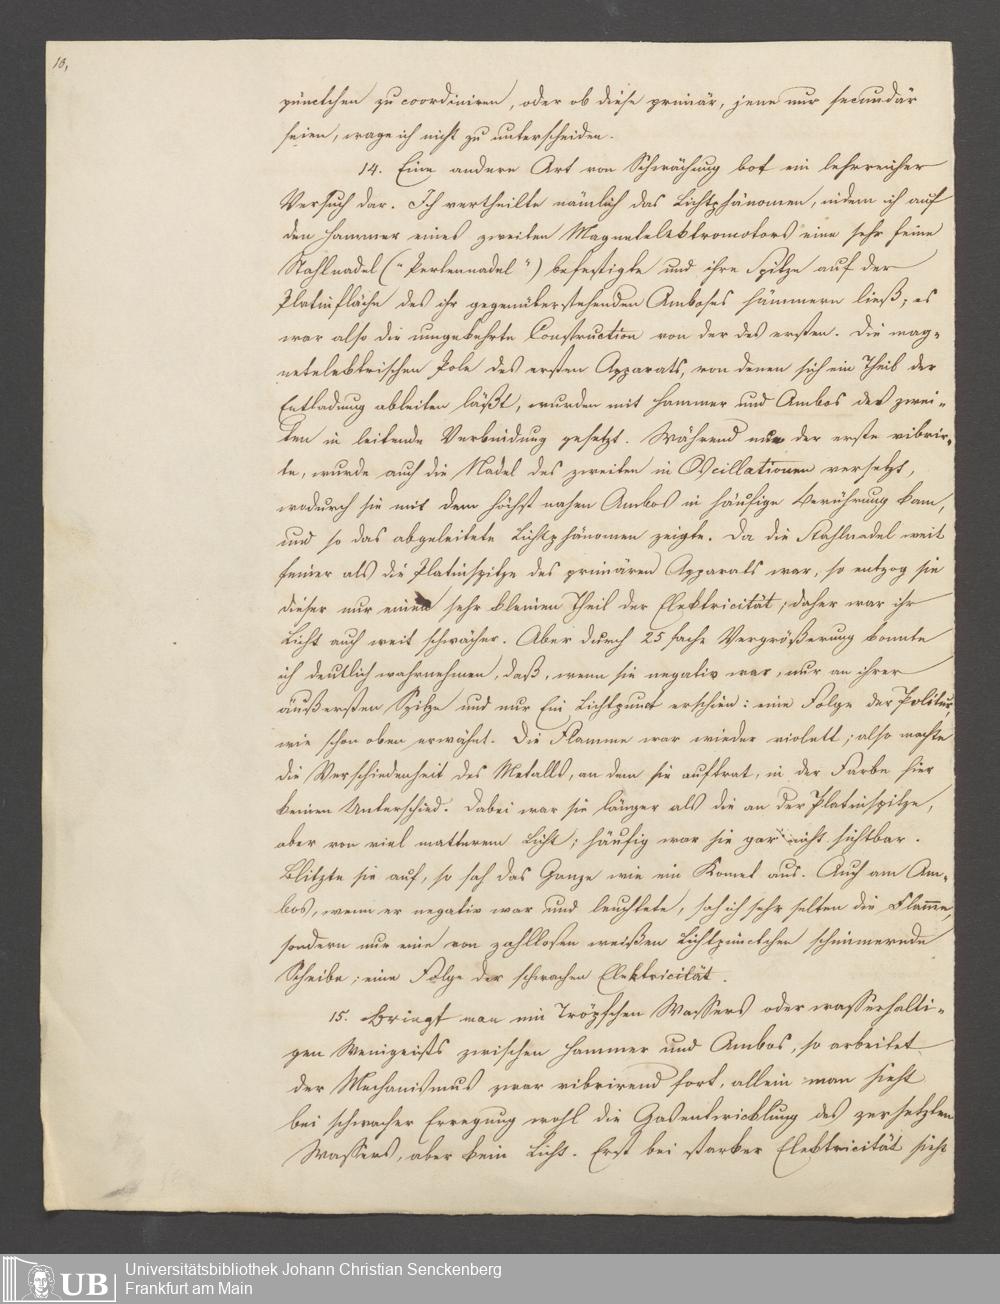 10,
pünctchen zu coordiniren, oder ob diese primär, jene nur secundär
seien, wage ich nicht zu unterscheiden.
14. Eine andere Art von Schwächung bot ein lehrreicher
Versuch dar. Ich vertheilte nämlich das Lichtphänomen, indem ich auf
den Hammer eines zweiten Magnetelektromotors eine sehr feine
Stahlnadel („Perlennadel“) befestigte und ihre Spitze auf der
Platinfläche des ihr gegenüberstehenden Amboses hämmern ließ; es
war also die umgekehrte Construction von der des ersten. Die mag-
netelektrischen Pole des ersten Apparats, von denen sich ein Theil der
Entladung ableiten läßt, wurden mit Hammer und Ambos des zwei-
ten in leitende Verbindung gesetzt. Während nun der erste vibrir-
te, wurde auch die Nadel des zweiten in Oscillationen versetzt,
wodurch sie mit dem höchst nahen Ambos in häufige Berührung kam,
und so das abgeleitete Lichtphänomen zeigte. Da die Stahlnadel weit
feiner als die Platinspitze des primären Apparats war, so entzog sie
dieser nur einen sehr kleinen Theil der Elektricität; daher war ihr
Licht auch weit schwächer. Aber durch 25 fache Vergrößerung konnte
ich deutlich wahrnehmen, daß, wenn sie negativ war, nur an ihrer
äußersten Spitze und nur Ein Lichtpunct erschien: eine Folge der Politur,
wie schon oben erwähnt. Die Flamme war wieder violett; also machte
die Verschiedenheit des Metalls, an dem sie auftrat, in der Farbe hier
keinen Unterschied. Dabei war sie länger als die an der Platinspitze,
aber von viel matterem Licht; häufig war sie gar nicht sichtbar.
Blitzte sie auf, so sah das Ganze wie ein Komet aus. Auch am Am-
bos, wenn er negativ war und leuchtete, sah ich sehr selten die Flamme,
sondern nur eine von zahllosen weißen Lichtpünctchen schimmernde
Scheibe; eine Folge der schwachen Elektricität.
15. Bringt man ein Tröpfchen Wassers oder wasserhalti-
gen Weingeists zwischen Hammer und Ambos, so arbeitet
der Mechanismus zwar vibrirend fort, allein man sieht
bei schwacher Erregung wohl die Gasentwicklung des zersetzten
Wassers, aber kein Licht. Erst bei starker Elektricität sieht
UB
Universitätsbibliothek Johann Christian Senckenberg
Frankfurt am Main